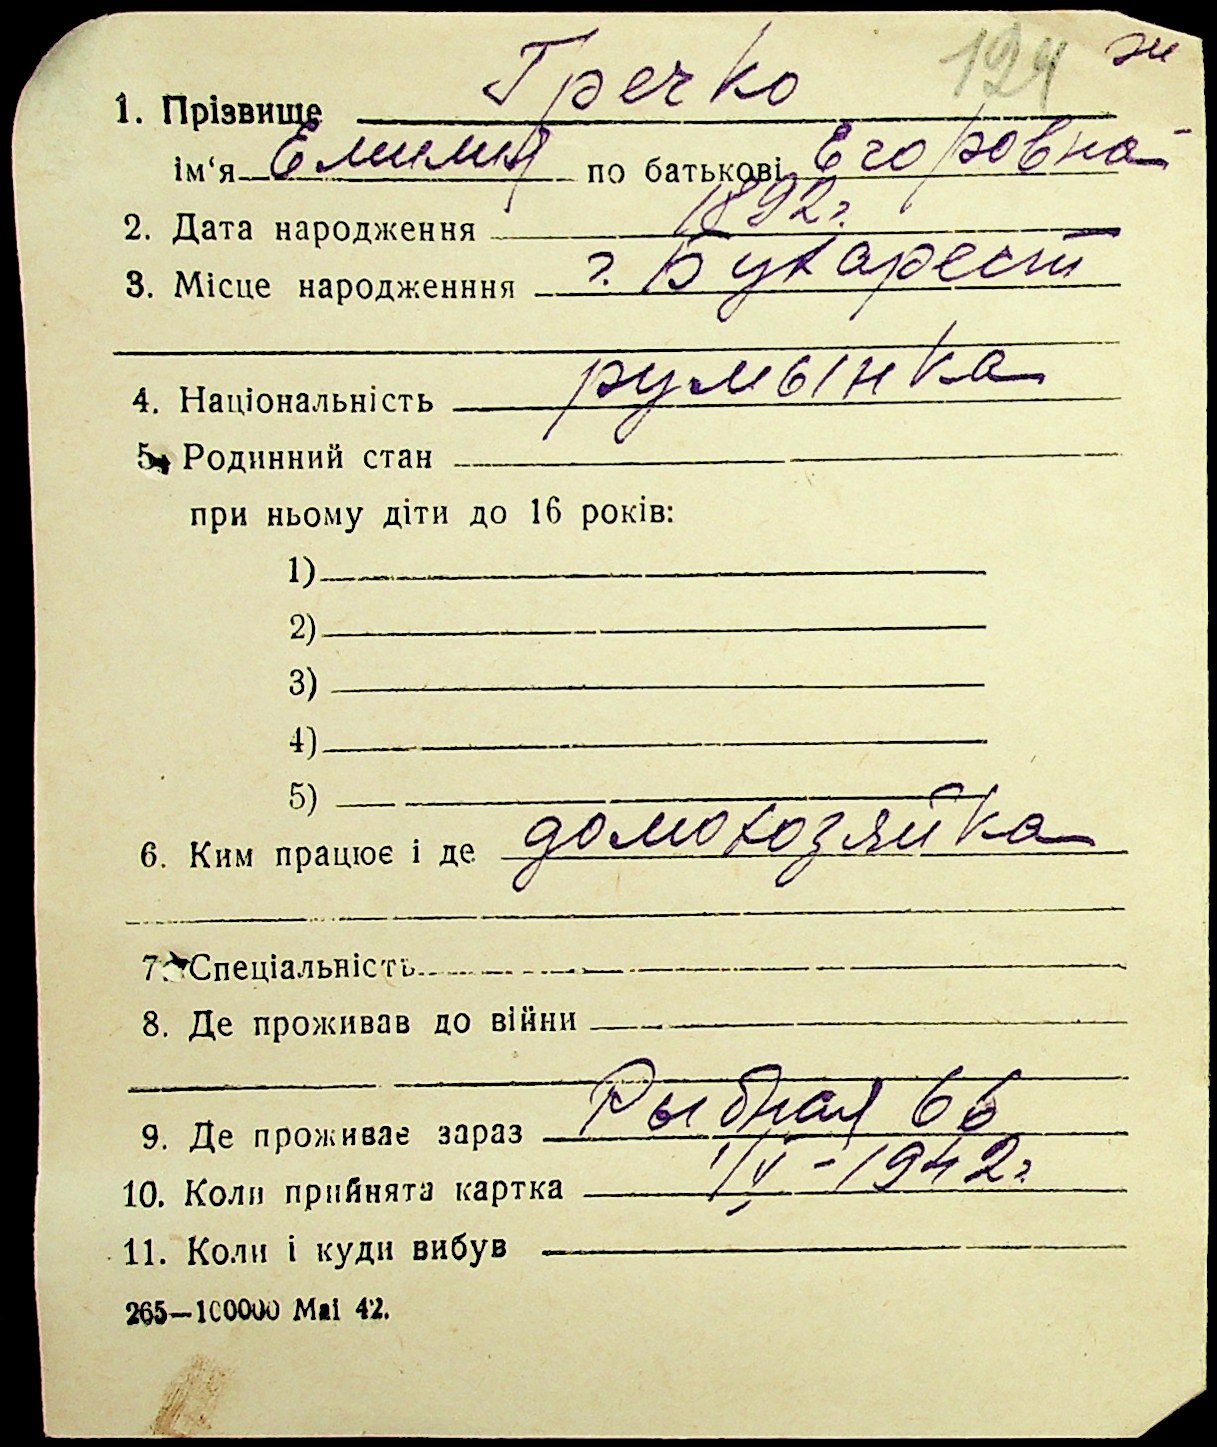 124 ж
1. Прізвище Гречко
ім‘я Емилия по батькові Егоровна
2. Дата народження 1892 г.
3. Місце народженння г. Бухарест
4. Національність румынка
5. Родинний стан
при ньому діти до 16 років:
1)
2)
3)
4)
5)
6. Ким працює і де домохозяйка
7. Спеціальність
8. Де проживав до війни
9. Де проживає зараз Рыбная 66
10. Коли прийнята картка 1/V-1942 г.
11. Коли і куди вибув
265—100000 Маі 42.